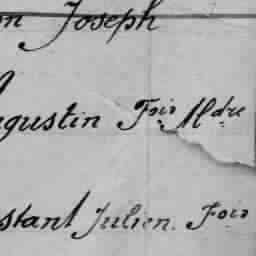 on Joseph
ugustin Fois Mdre
stant Julien. Fois